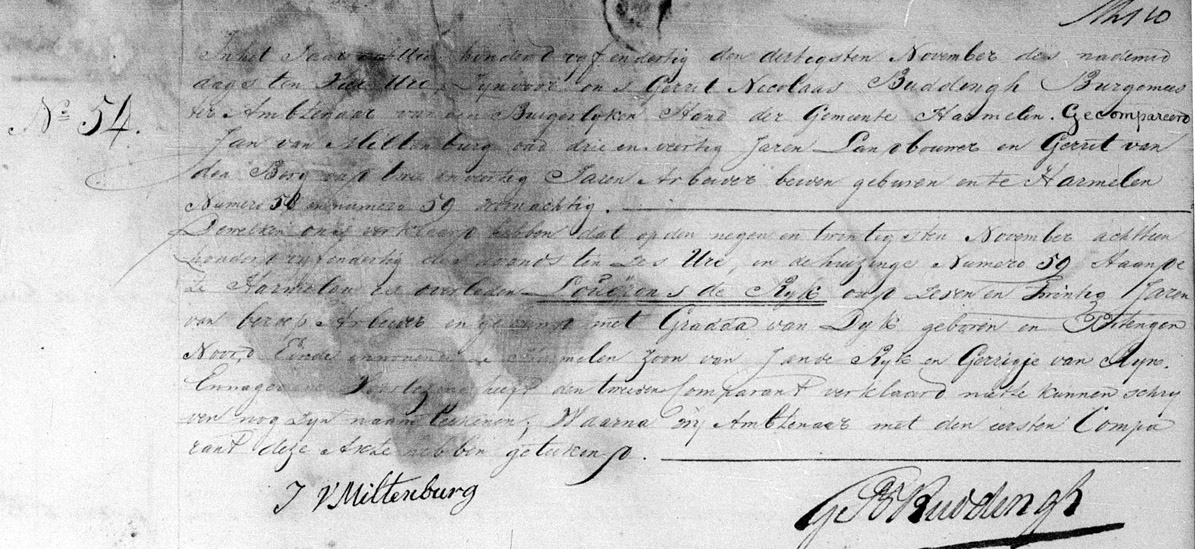 In het Jaar achttien honderd vyf en dertig den dertigsten November des namid
dags ten Vier Ure, Zyn voor ons Gerrit Nicolaas Buddingh Burgemees
ter Ambtenaar van den Burgerlyken Stand der Gemeente Harmelen. Gecompareerd
No 54.
Jan van Miltenburg oud drie en veertig Jaren Landbouwer en Gerrit van
den Berg oud twee en veertig Jaren Arbeider beiden geburen en te Harmelen
Numero 58 en numero 59 woonachtig.
Dewelken ons verklaard hebben dat op den negen en twintigsten November achttien
honderd vyf en dertig des avonds ten Zes Ure, in de huizinge Numero 59 staande
te Harmelen is overleden Lourens de Ryk oud Zeven en Twintig Jaren
van beroep Arbeider en gehuwd met Gradda van Dyk geboren en
Noord Einde en wonende te Harmelen Zoon van Jan de Ryk en Gerrigje van Ryn.
En na gedane Voorlezing heeft den tweeden Comparant verklaard niet te kunnen schry
ven nog Zyn naam teekenen, Waarna Wij Ambtenaar met den eersten Compa
rant deze Akte hebben geteekend.
J V Miltenburg
G N Buddingh